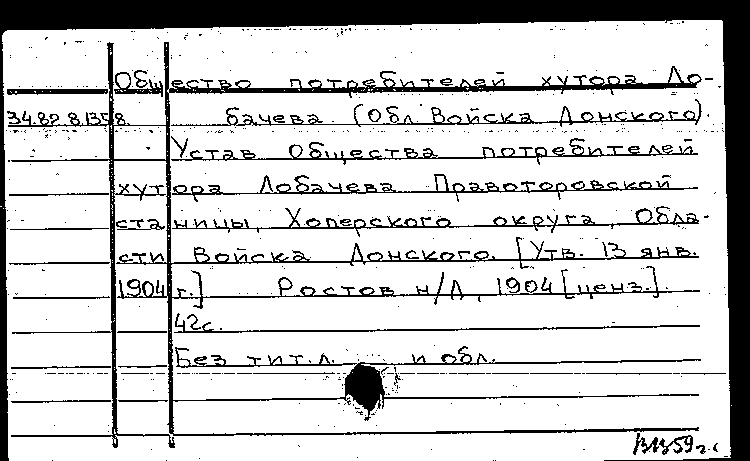 Общество потребителей хутора Ло-
34.82.8.1358. бачева (Обл. Войска Донского).
Устав Общества потребителей
хутора Лобачева Правоторовской
станицы, Хоперского округа, Обла-
сти Войска Донского. [Утв. 13 янв.
1904 г.] Ростов н/Д, 1904 [ценз.].
42с.
Без тит. л. и обл.